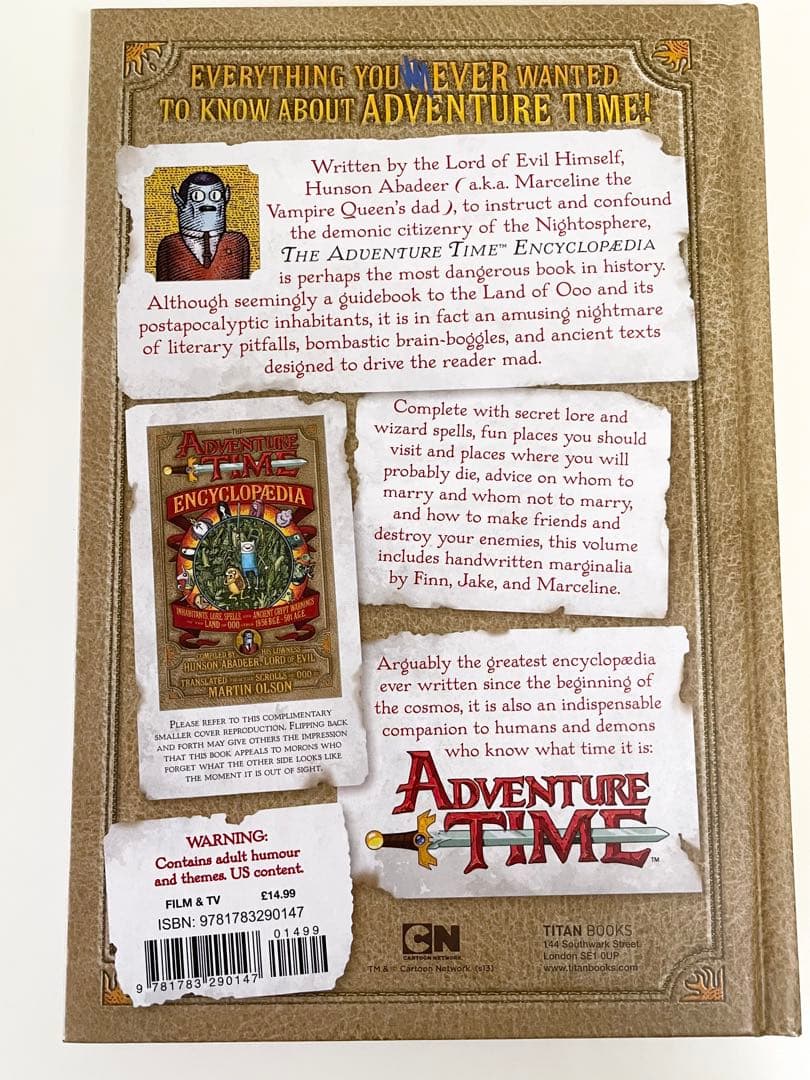 EVERYTHING YOU EVER WANTED
TO KNOW ABOUT ADVENTURE TIME!
Written by the Lord of Evil Himself,
Hunson Abadeer (a.k.a. Marceline the
Vampire Queen's dad), to instruct and confound
the demonic citizenry of the Nightosphere,
THE ADVENTURE TIME™ ENCYCLOPÆDIA
is perhaps the most dangerous book in history.
Although seemingly a guidebook to the Land of Ooo and its
postapocalyptic inhabitants, it is in fact an amusing nightmare
of literary pitfalls, bombastic brain-boggles, and ancient texts
designed to drive the reader mad.
THE
ADVENTURE
TIME
ENCYCLOPÆDIA
INHABITANTS, LORE, SPELLS, AND ANCIENT CRYPT WARNINGS
OF THE LAND OF OOO CIRCA 19.56 B.G.E. - 501 A.G.E.
COMPILED BY HIS LOWNESS
HUNSON ABADEER, LORD OF EVIL
TRANSLATED FROM THE SCROLLS OF OOO
MARTIN OLSON
PLEASE REFER TO THIS COMPLIMENTARY
SMALLER COVER REPRODUCTION. FLIPPING BACK
AND FORTH MAY GIVE OTHERS THE IMPRESSION
THAT THIS BOOK APPEALS TO MORONS WHO
FORGET WHAT THE OTHER SIDE LOOKS LIKE
THE MOMENT IT IS OUT OF SIGHT.
Complete with secret lore and
wizard spells, fun places you should
visit and places where you will
probably die, advice on whom to
marry and whom not to marry,
and how to make friends and
destroy your enemies, this volume
includes handwritten marginalia
by Finn, Jake, and Marceline.
Arguably the greatest encyclopædia
ever written since the beginning of
the cosmos, it is also an indispensable
companion to humans and demons
who know what time it is:
ADVENTURE
TIME™
WARNING:
Contains adult humour
and themes. US content.
FILM & TV £14.99
ISBN: 9781783290147
01499
9 781783 290147
CN
CARTOON NETWORK
TM & © Cartoon Network. (s13)
TITAN BOOKS
144 Southwark Street
London SE1 0UP
www.titanbooks.com